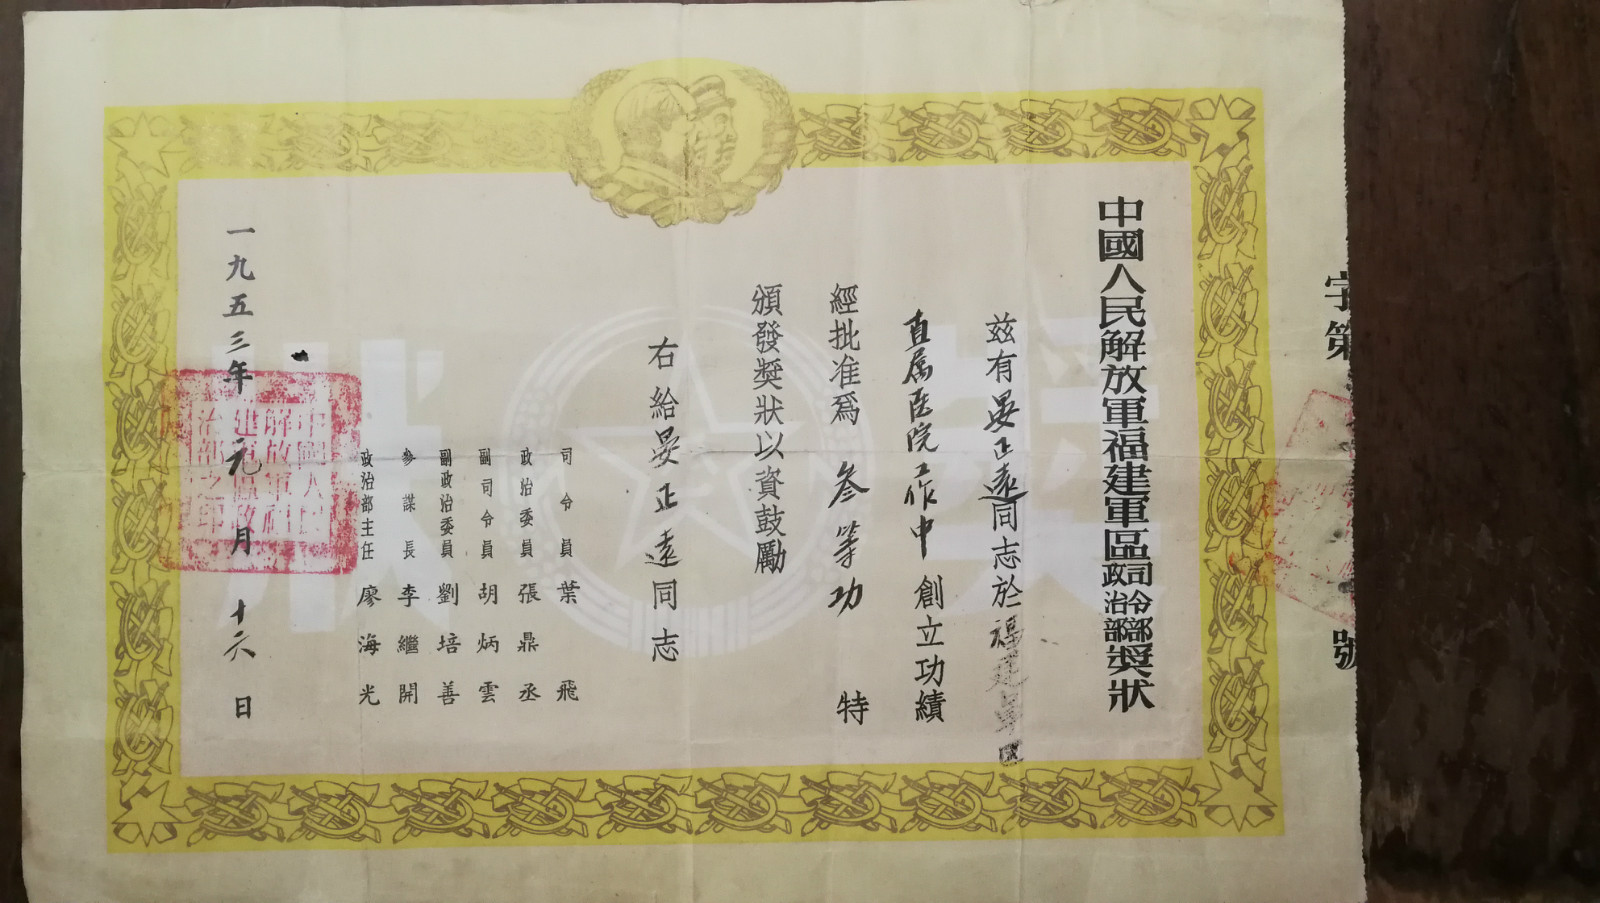 字第 號
中國人民解放軍福建軍區司令部政治部獎狀
茲有晏正遠同志於福建軍區
直属医院工作中創立功績
經批准爲 叁等功 特
頒發獎狀以資鼓勵
右給晏正遠同志
司令員 葉飛
政治委員 張鼎丞
副司令員 胡炳雲
副政治委員 劉培善
參謀長 李繼開
政治部主任 廖海光
一九五三年元月十六日
中國人民解放軍福建軍區政治部之印
獎狀